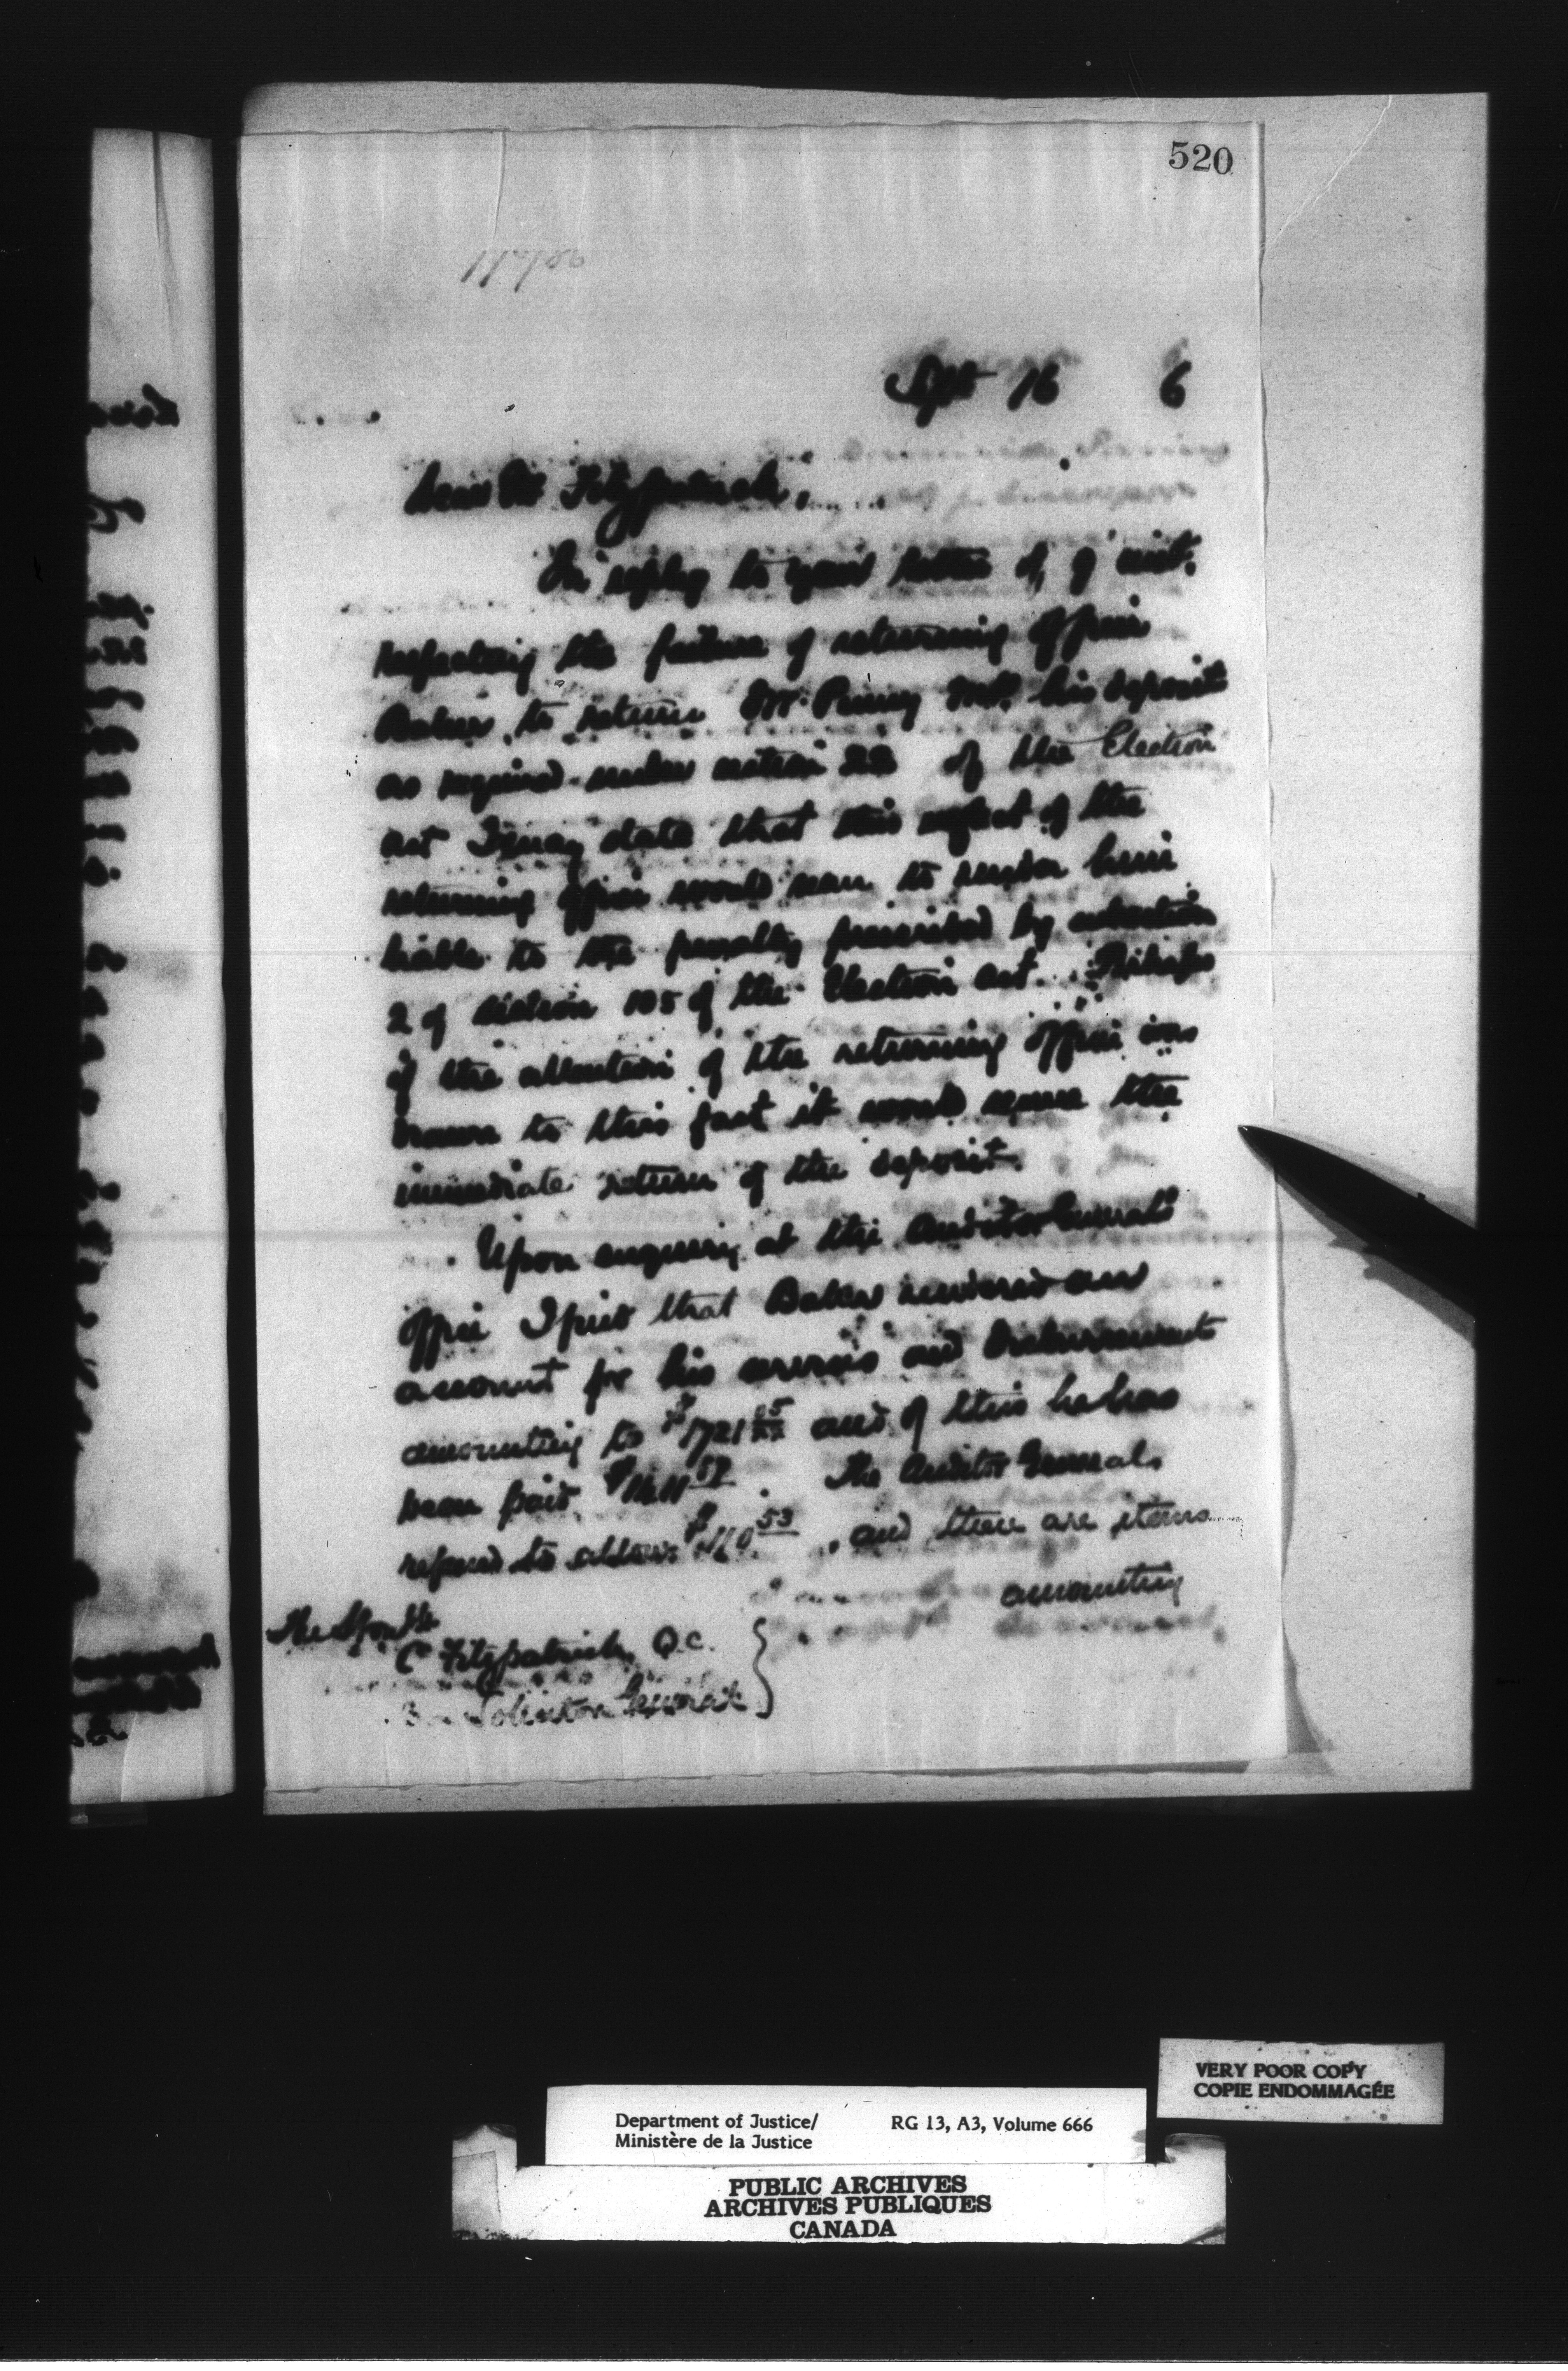 520
Sept 16 6
Dear Mr Fitzpatrick,
In reply to your letter of 9 inst.
respecting the failure of returning officer
Baker to return Mr. M.P. his deposit
as required under section 22 of the Election
act I may state that this neglect of the
returning officer would seem to render him
liable to the penalty prescribed by subsection
2 of section 105 of the Election act. Perhaps
if the attention of the returning officer was
drawn to this fact it would secure the
immediate return of the deposit.
Upon enquiry at the Auditor Generals
office I find that Baker rendered an
account for his services and disbursements
amounting to and of this he has
been paid. The Auditor Generals
refused to allow , and there are items
amounting
The Honble
C Fitzpatrick, Q.C.
Solicitor General
VERY POOR COPY
COPIE ENDOMMAGÉE
Department of Justice/ RG 13, A3, Volume 666
Ministère de la Justice
PUBLIC ARCHIVES
ARCHIVES PUBLIQUES
CANADA